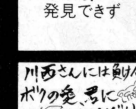 発見できず
川西さんには負け
ボクの発、君に